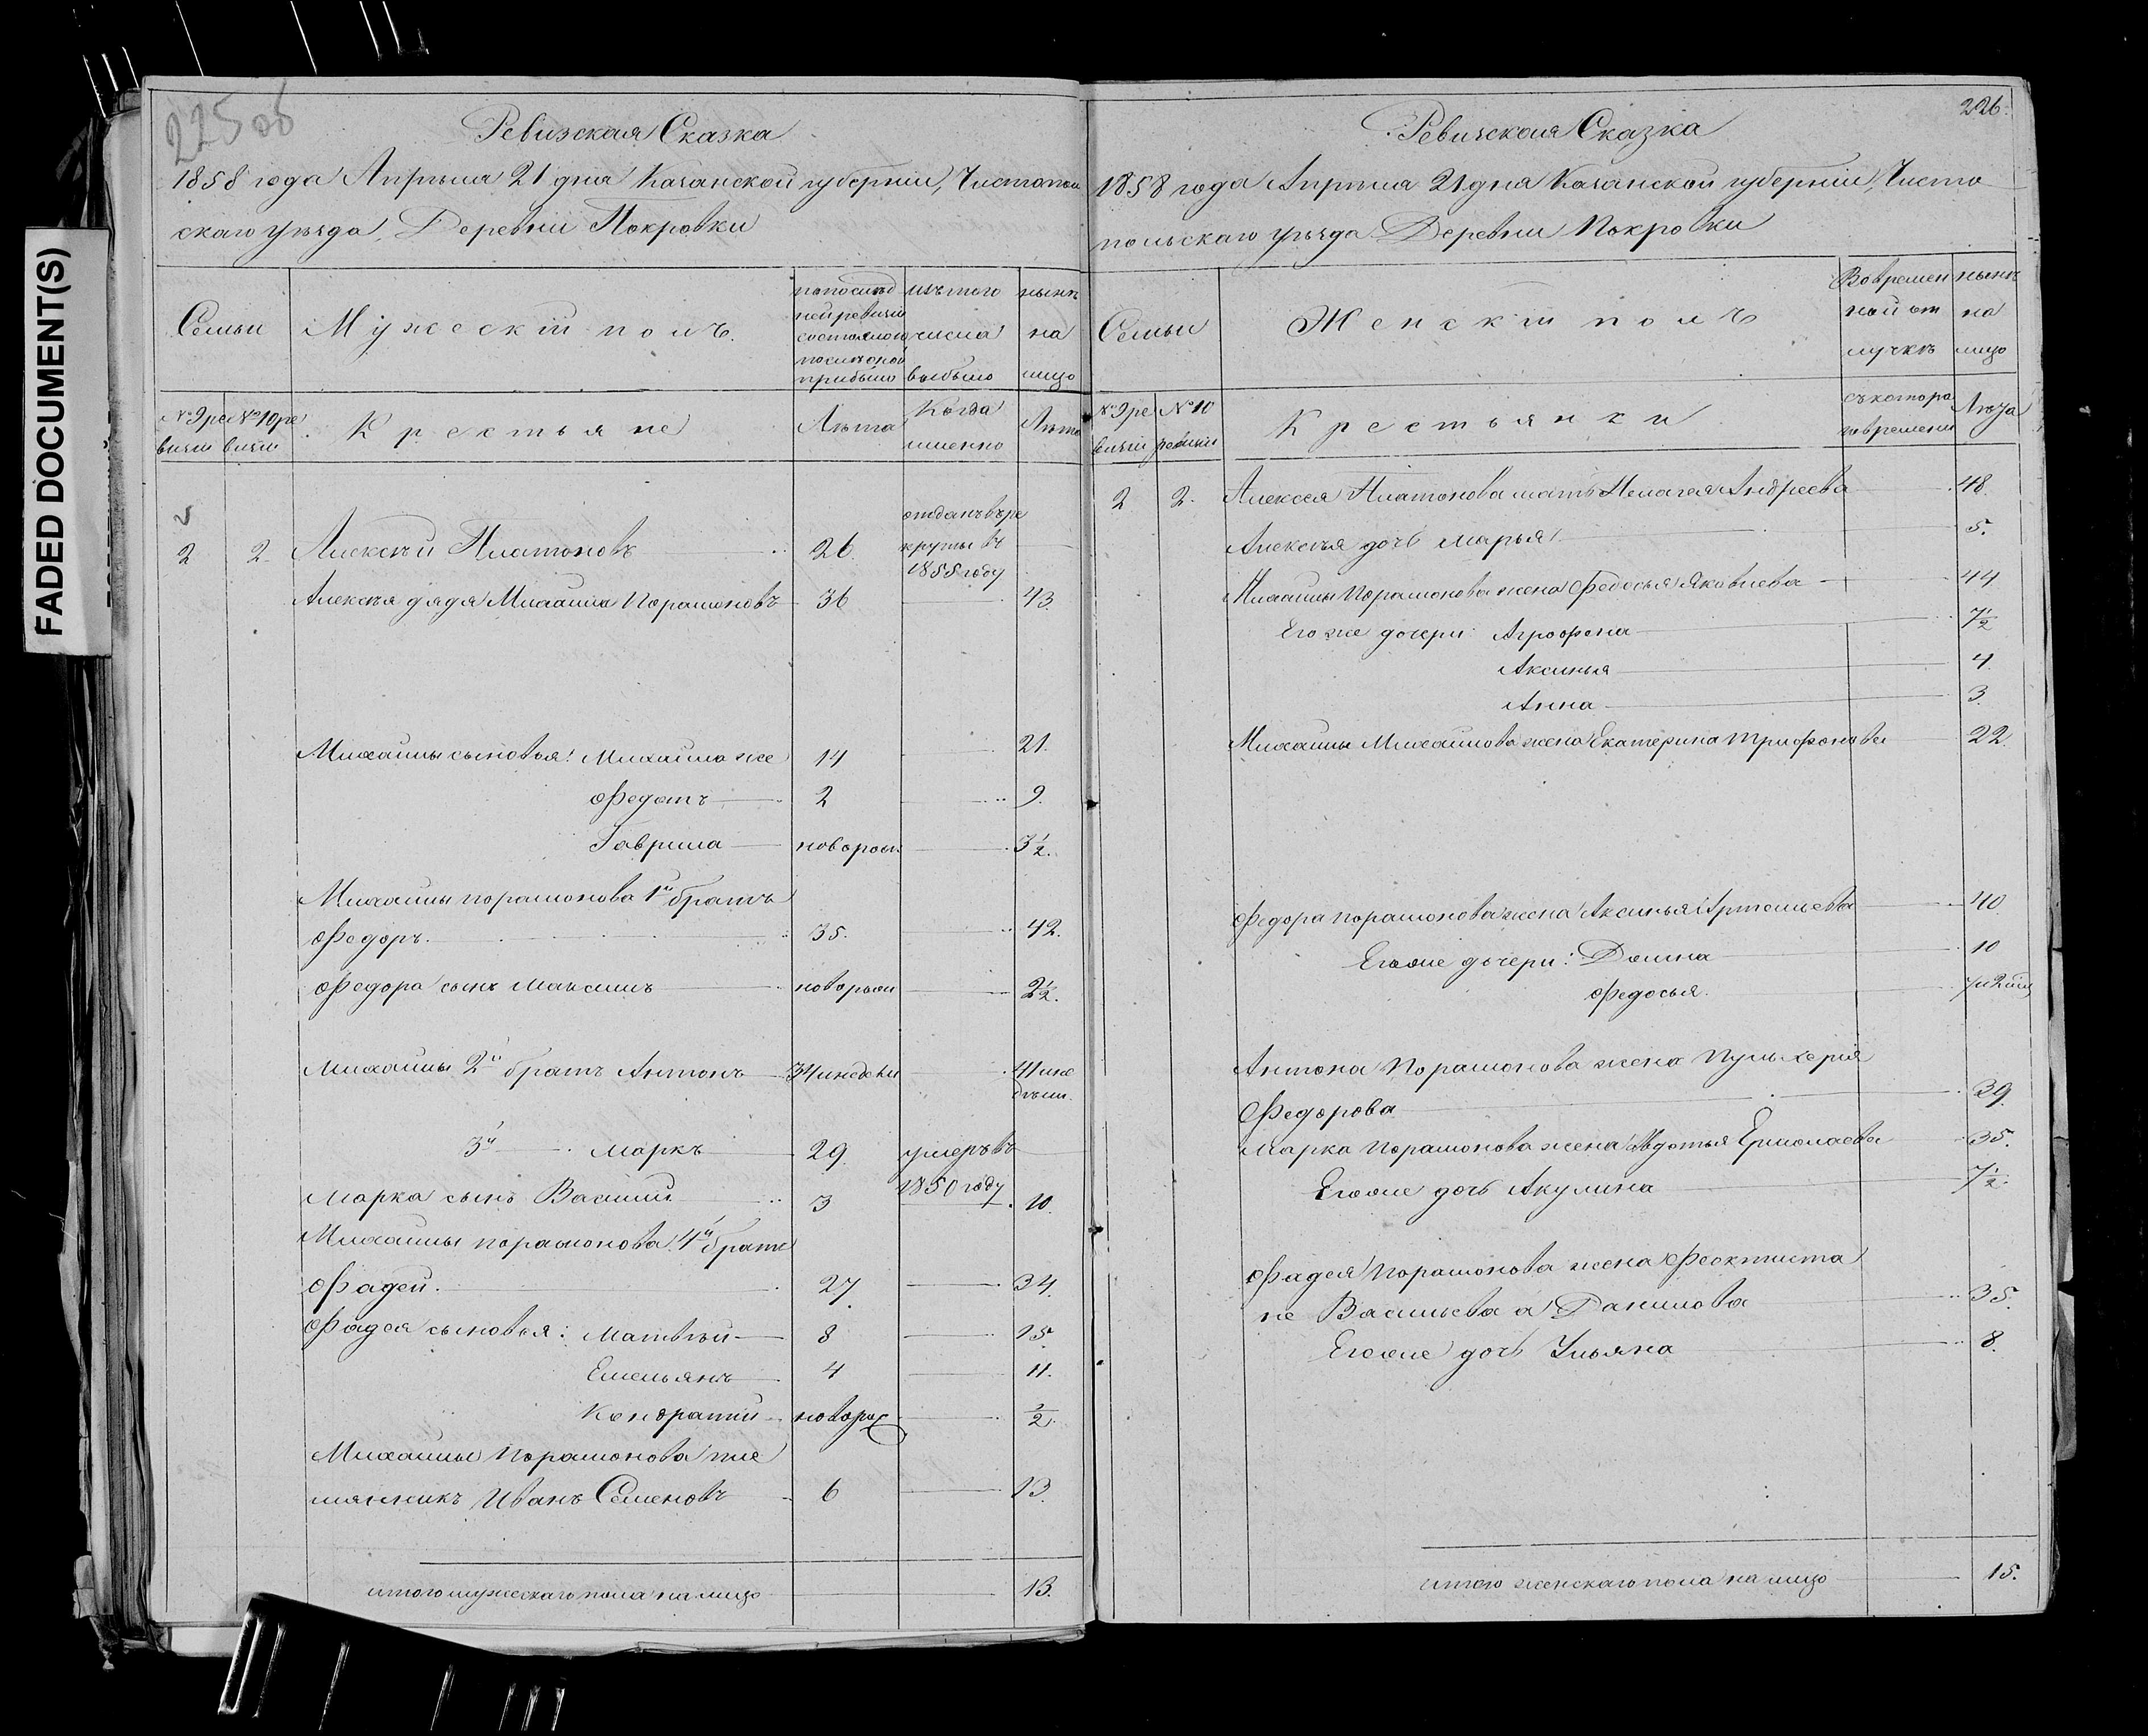 FADED DOCUMENT(S)
225 об
Ревизская Сказка
1858 года Апрѣля 21 дня Казанской губерніи, Чистополь
скаго уѣзда, Деревни Покровки
Семьи
Мужескій полъ.
по послѣд
ней ревизіи
состояло и
послѣ оной
прибыло
изъ того
числа
выбыло
нынѣ
на
лицо
№ 9 ре
визіи
№ 10 ре
визіи
Крестьяне
Лѣта
Когда
именно
Лѣта
2 2. Алексѣй Платоновъ 26. отданъ въ ре
круты въ
1855 году
Алексѣя дядя Михаила Порамоновъ 36 43.
Михайлы сыновья: Михайла же 14 21.
Федотъ 2 9.
Гаврила новорож 3 1/2.
Михайлы Порамонова 1й братъ
Федоръ. 35. 42.
Федора сынъ Максимъ новорож 2 1/2.
Михайлы 2й братъ Антонъ 34 41
3й Маркъ 29. умеръ въ
1850 году
Марка сынъ Василій 3 10.
Михайлы Порамонова 4й братъ
Фадей. 27. 34.
Фадея сыновья: Матвѣй 8 15.
Емельянъ 4 11.
Кондратій новорож 1/2.
Михайлы Порамонова пле
мянникъ Иванъ Семеновъ 6 13.
итого мужескаго пола на лицо 13.
226.
Ревизская Сказка
1858 года Апрѣля 21 дня Казанской губерніи, Чисто
польскаго уѣзда Деревни Покровки
Семьи
Женскій полъ
Во времен
ной от
лучкѣ
нынѣ
на
лицо
№ 9 ре
визіи
№ 10
ревизіи
Крестьянки
съ котора
го времени
Лѣта
2 2. Алексея Платонова мать Пелагея Андреева 48.
Алексѣя дочь Марья 5.
Михайлы Порамонова жена Федосья Яковлева 44
Его же дочери: Агрофена 7 1/2
Аксинья 4.
Анна 3.
Михайлы Михайлова жена Екатерина Трифонова 22.
Федора Порамонова жена Аксинья Артемьева 40
Его же дочери: Домна 10
Федосья. 7 и 2 мѣц
Антона Порамонова жена Пульхерія
Федорова 39.
Марка Порамонова жена Авдотья Ермолаева 35.
Его же дочь Акулина 7 1/2.
Фадея Порамонова жена Феоктиста
не Васильева а Данилова 35.
Его же дочь Ульяна 8.
итого женскаго пола на лицо 15.